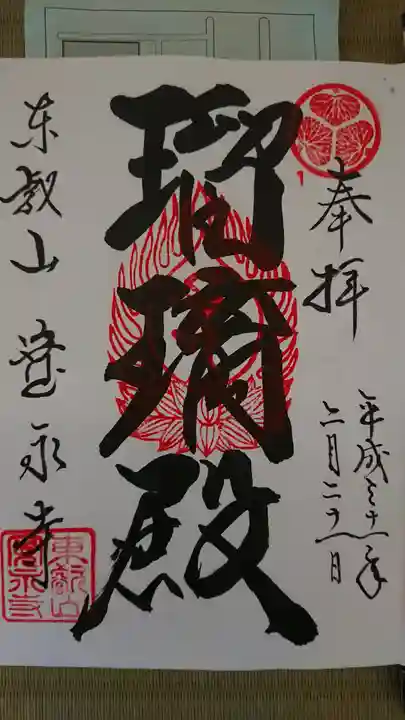 奉拝
平成三十一年
二月二十一日
瑠璃殿
東叡山 寛永寺
東叡山
寛永寺